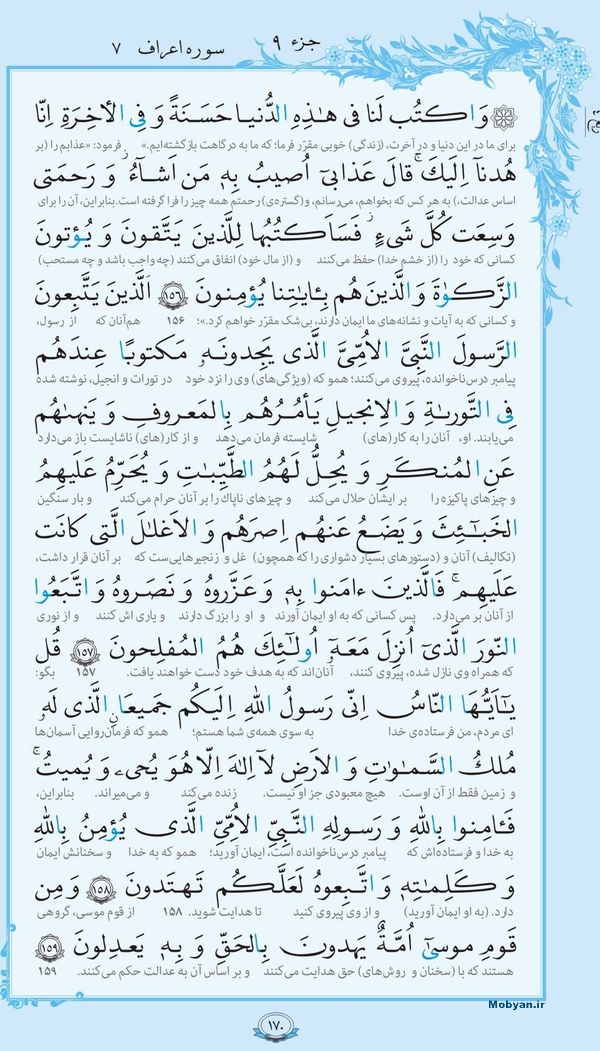 جزء ۹
سوره اعراف ۷
وَاكتُب لَنا فى هٰذِهِ الدُّنيا حَسَنَةً وَ فِى الأخِرَةِ اِنّا
برای ما در این دنیا و در آخرت، (زندگی) خوبی مقرّر فرما؛ که ما به درگاهت بازگشته‌ایم.» فرمود: «عذابم را (بر
هُدنآ اِلَيكَ ۚ قالَ عَذابىٓ اُصيبُ بِهٖ مَن اَشآءُ ۖ وَ رَحمَتى
اساس عدالت،) به هر کس که بخواهم، می‌رسانم، و(گستره‌ی) رحمتم همه چیز را فرا گرفته است.بنابراین، آن را برای
وَسِعَت كُلَّ شَىءٍ ۚ فَسَاَكتُبُها لِلَّذينَ يَتَّقونَ وَ يُؤتونَ
کسانی که خود را (از خشم خدا) حفظ می‌کنند و (از مال خود) انفاق می‌کنند (چه واجب باشد و چه مستحب)
الزَّكوٰةَ وَالَّذينَ هُم بِـٔايٰتِنا يُؤمِنونَ ﴿۱۵۶﴾ اَلَّذينَ يَتَّبِعونَ
و کسانی که به آیات و نشانه‌های ما ایمان دارند، بی‌شک مقرّر خواهم کرد.»؛ ۱۵۶ هم‌آنان که از رسول،
الرَّسولَ النَّبِىَّ الاُمِّىَّ الَّذى يَجِدونَهٗ مَكتوبًا عِندَهُم
پیامبر درس‌ناخوانده، پیروی می‌کنند؛ همو که (ویژگی‌های) وی را نزد خود در تورات و انجیل، نوشته شده
فِى التَّورىٰةِ وَ الاِنجيلِ يَأمُرُهُم بِالمَعروفِ وَ يَنهىٰهُم
می‌یابند. او، آنان را به کار(های) شایسته فرمان می‌دهد و از کار(های) ناشایست باز می‌دارد
عَنِ المُنكَرِ وَ يُحِلُّ لَهُمُ الطَّيِّبٰتِ وَ يُحَرِّمُ عَلَيهِمُ
و چیزهای پاکیزه را بر ایشان حلال می‌کند و چیزهای ناپاک را بر آنان حرام می‌کند و بار سنگین
الخَبٰٓئِثَ وَ يَضَعُ عَنهُم اِصرَهُم وَ الاَغلٰلَ الَّتى كانَت
(تکالیف) آنان و (دستورهای بسیار دشواری را که همچون) غل و زنجیرهایی‌ست که بر آنان قرار داشت،
عَلَيهِم ۚ فَالَّذينَ ءامَنوا بِهٖ وَ عَزَّروهُ وَ نَصَروهُ وَ اتَّبَعُوا
از آنان بر می‌دارد. پس کسانی که به او ایمان آورند و او را بزرگ دارند و یاری اش کنند و از نوری
النّورَ الَّذىٓ اُنزِلَ مَعَهٗٓ ۙ اُولٰٓئِكَ هُمُ المُفلِحونَ ﴿۱۵۷﴾ قُل
که همراه وی نازل شده، پیروی کنند، آنان‌اند که به هدف خود دست خواهند یافت. ۱۵۷ بگو:
يٰٓاَيُّهَا النّاسُ اِنّى رَسولُ اللهِ اِلَيكُم جَميعًاۨ الَّذى لَهٗ
ای مردم، من فرستاده‌ی خدا به سوی همه‌ی شما هستم؛ همو که فرمان‌روایی آسمان‌ها
مُلكُ السَّمٰوٰتِ وَ الاَرضِ ۖ لآ اِلٰهَ اِلّا هُوَ يُحىۦ وَ يُميتُ ۖ
و زمین فقط از آن اوست. هیچ معبودی جز او نیست. زنده می‌کند و می‌میراند. بنابراین،
فَـٔامِنوا بِاللهِ وَ رَسولِهِ النَّبِىِّ الاُمِّىِّ الَّذى يُؤمِنُ بِاللهِ
به خدا و فرستاده‌اش که پیامبر درس‌ناخوانده است، ایمان آورید؛ همو که به خدا و سخنانش ایمان
وَ كَلِمٰتِهٖ وَ اتَّبِعوهُ لَعَلَّكُم تَهتَدونَ ﴿۱۵۸﴾ وَ مِن
دارد. (به او ایمان آورید) و از وی پیروی کنید تا هدایت شوید. ۱۵۸ از قوم موسی، گروهی
قَومِ موسىٰٓ اُمَّةٌ يَهدونَ بِالحَقِّ وَ بِهٖ يَعدِلونَ ﴿۱۵۹﴾
هستند که با (سخنان و روش‌های) حق هدایت می‌کنند و بر اساس آن به عدالت حکم می‌کنند. ۱۵۹
Mobyan.ir
۱۷۰